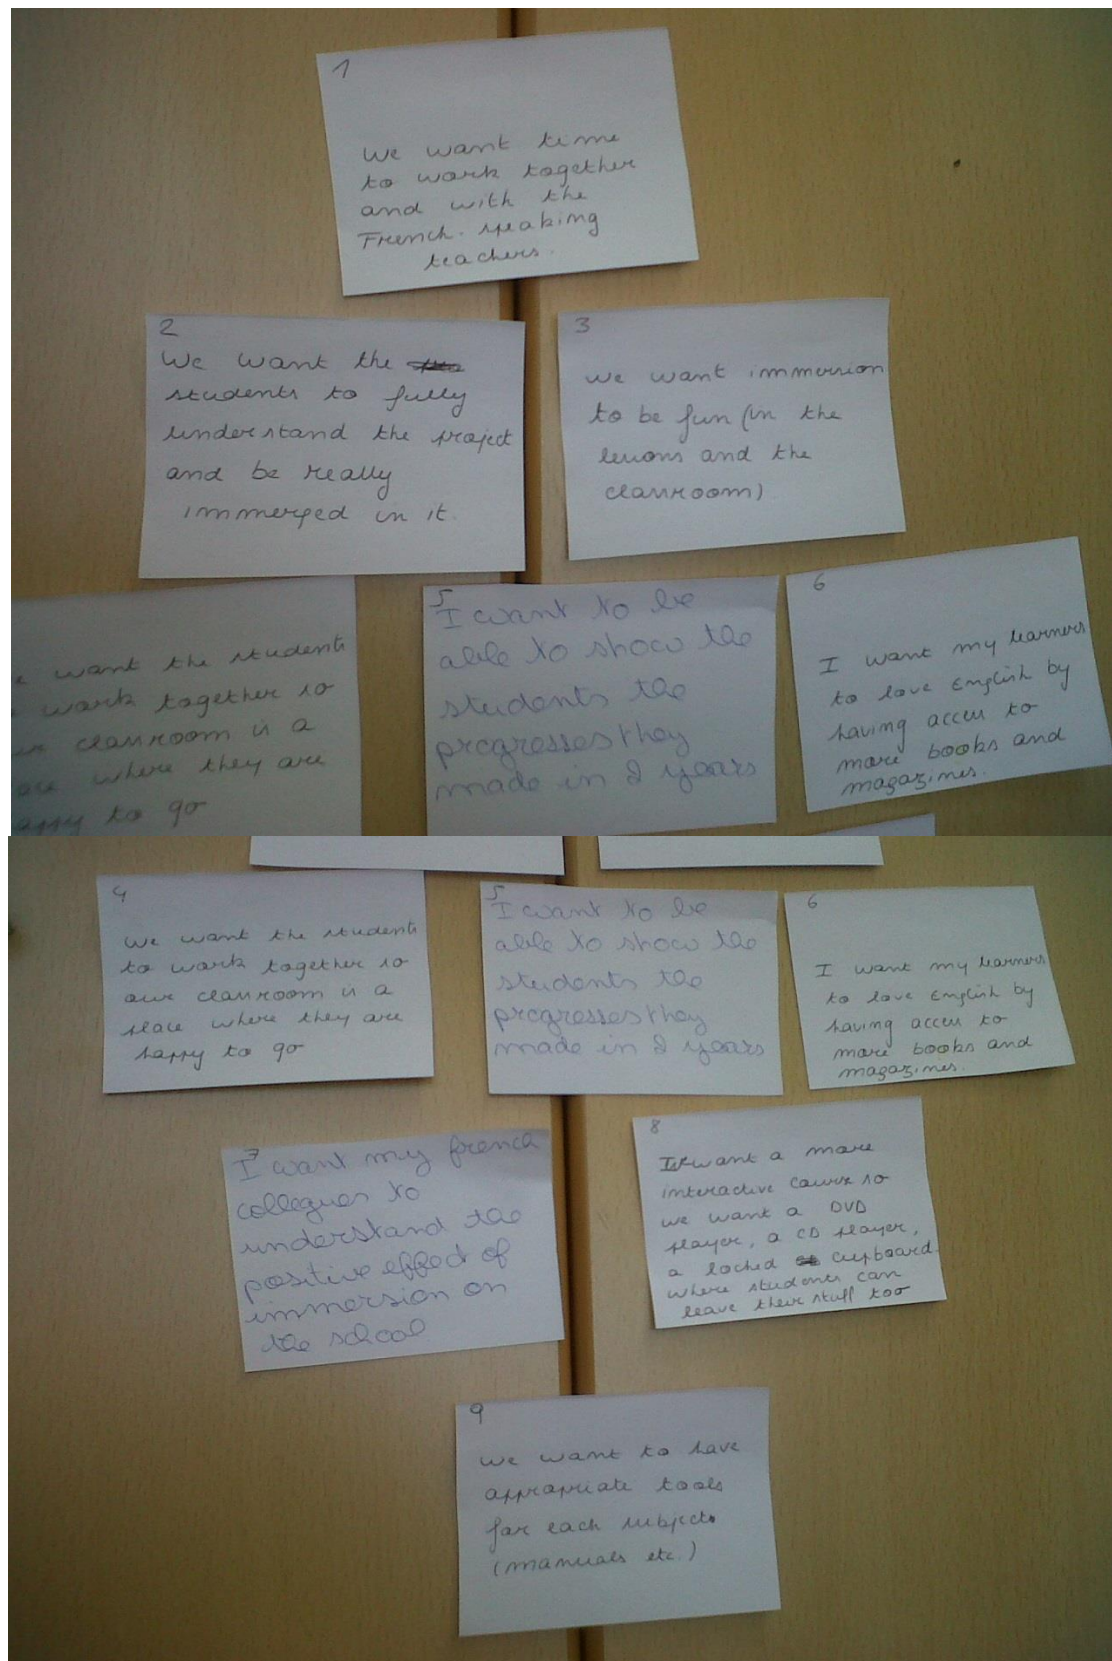 1
We want time
to work together
and with the
French-speaking
teachers.
2
We want the
students to fully
understand the project
and be really
immerged in it.
3
we want immersion
to be fun (in the
lessons and the
classroom)
want the students
work together so
classroom is a
where they are
happy to go
5
I want to be
able to show the
students the
progresses they
made in 2 years
6
I want my learners
to love English by
having access to
more books and
magazines.
4
we want the students
to work together so
our classroom is a
place where they are
happy to go
5
I want to be
able to show the
students the
progresses they
made in 2 years
6
I want my learners
to love English by
having access to
more books and
magazines.
7
I want my french
collegues to
understand the
positive effect of
immersion on
the school
8
want a more
interactive course so
we want a DVD
player, a CD player,
a locked cupboard
where students can
leave their stuff too
9
we want to have
appropriate tools
for each subject
(manuals etc.)